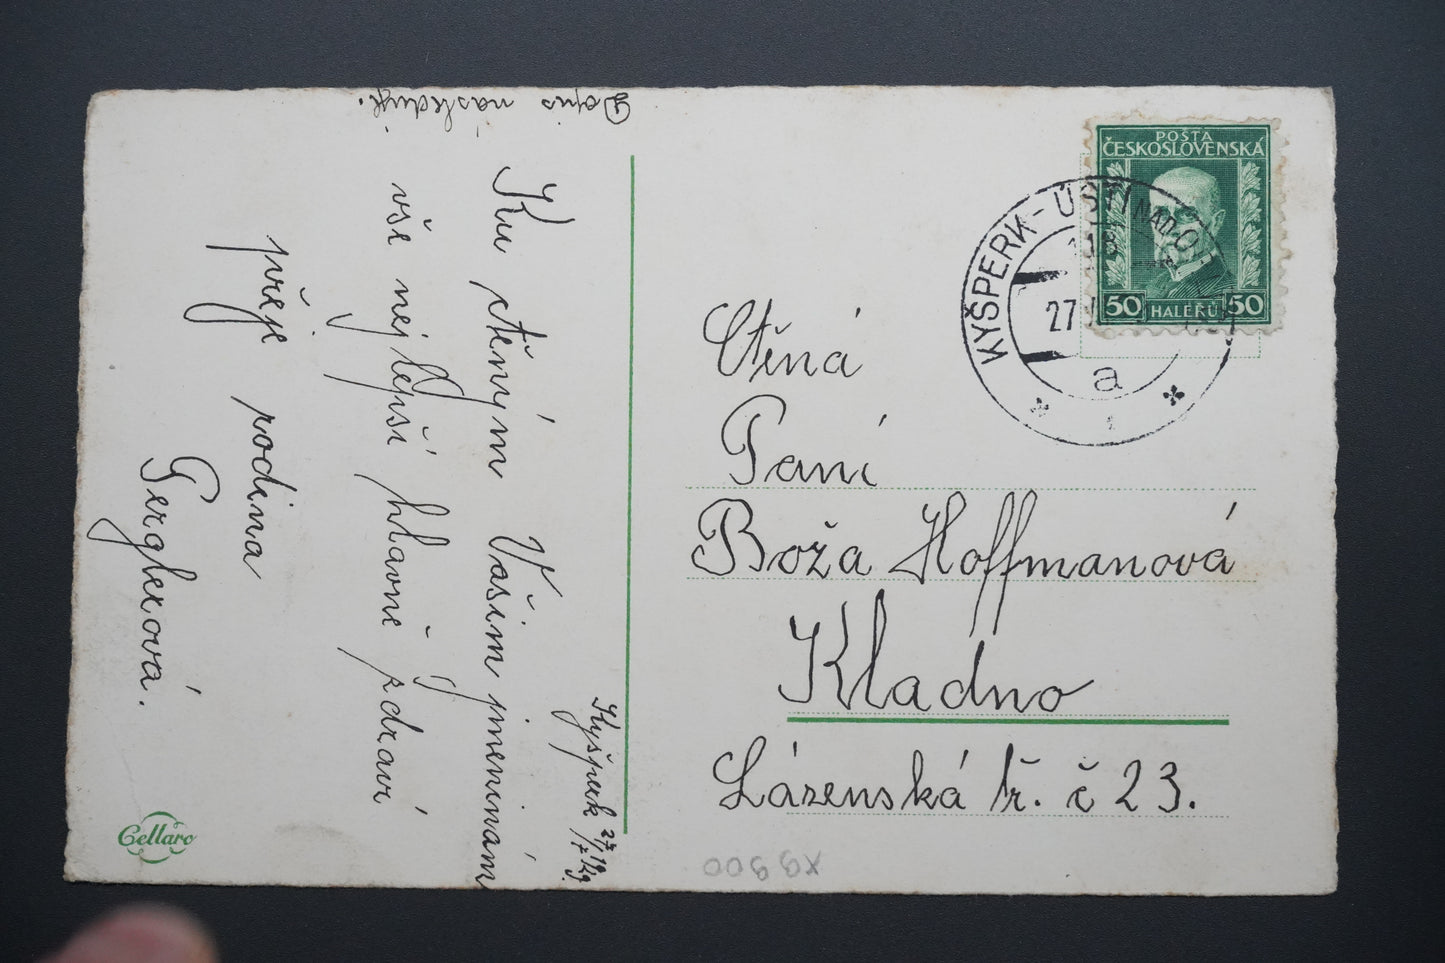 Dopis následuje.
Kyšperk 27/7 1929
Ku ctěným Vašim jmeninám
vše nejlepší hlavně zdraví
přeje rodina
Gergherová.
Cellaro
POŠTA
ČESKOSLOVENSKÁ
50 HALÉŘŮ 50
KYŠPERK - ÚSTÍ NAD O.
27
a
Ctěná
Paní
Boža Hoffmanová
Kladno
Lázenská tř. č 23.